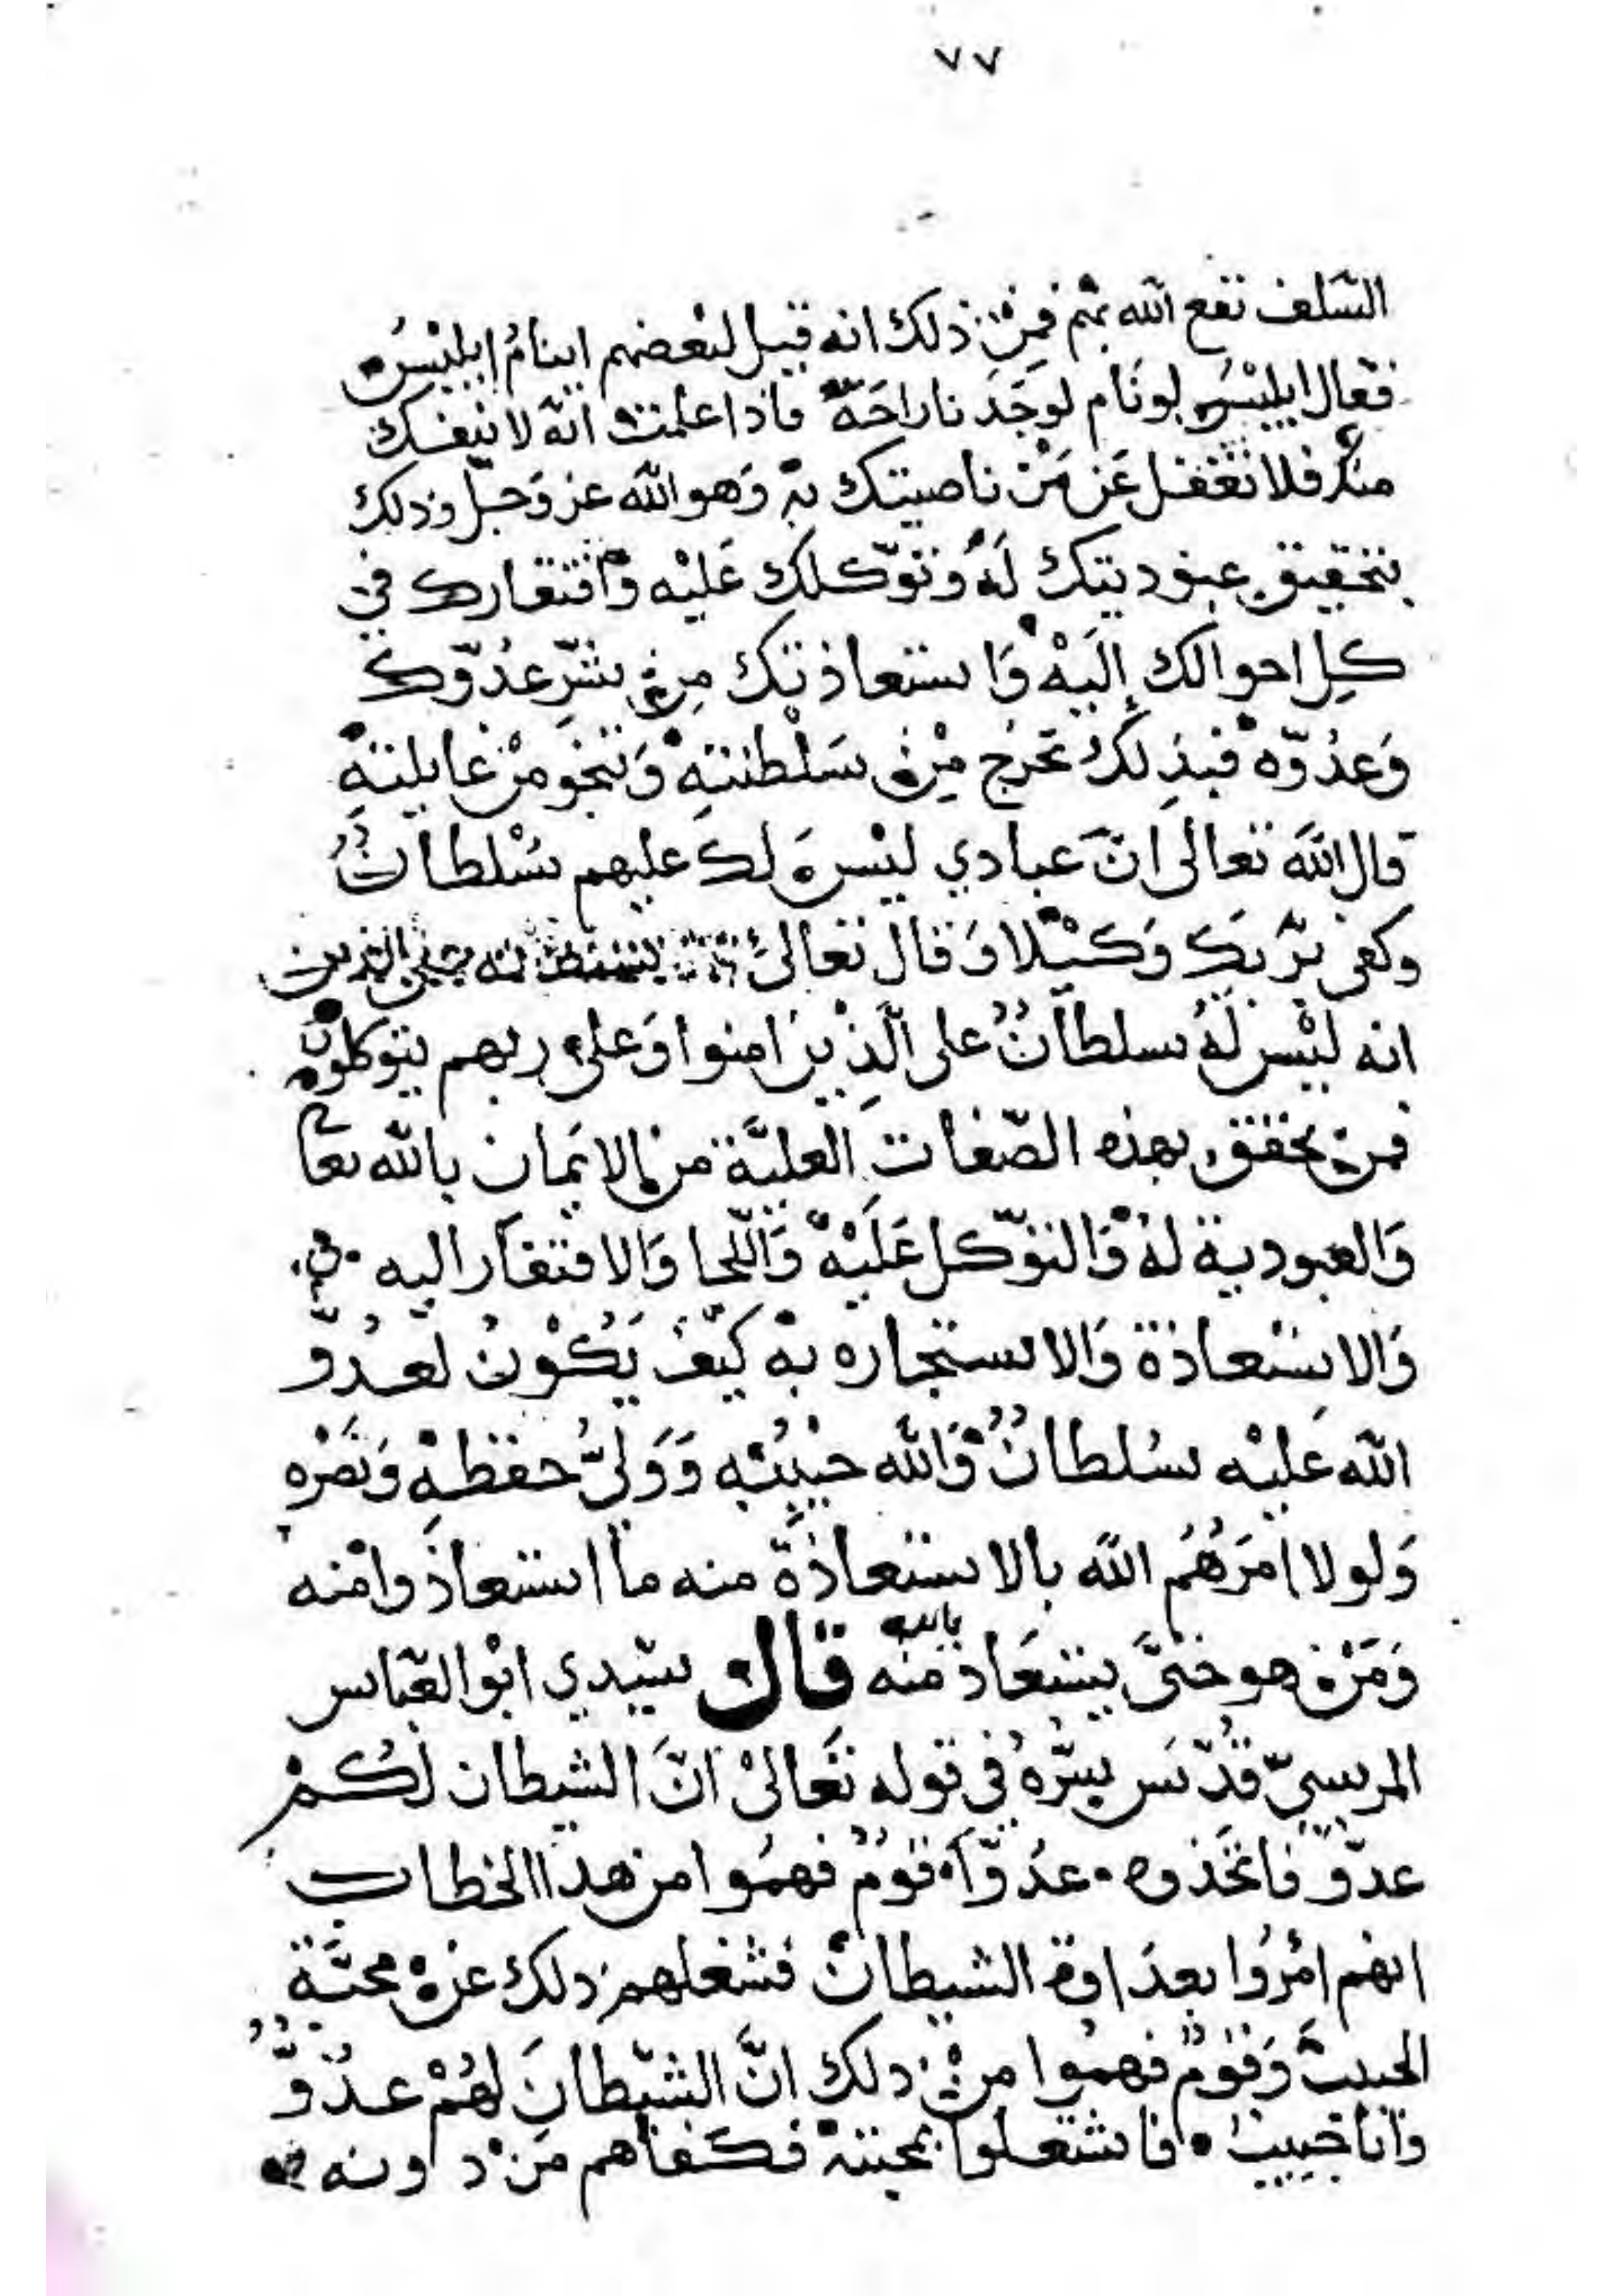 ٧٧
السلف نفع الله بهم فمن ذلك انه قيل لبعضهم اينام ابليس
فقال ابليس لو نام لوجدنا راحة فاذا علمت انه لا ينفك
منك فلا تغفل عن من ناصيتك به وهو الله عز وجل وذلك
بتحقيق عبوديتك له وتوكلك عليه وافتقارك في
كل احوالك إليه واستعاذتك من شر عدوك
وعدوه فبذلك تخرج من سلطنته وتنجو من غايلته
قال الله تعالى ان عبادي ليس لك عليهم سلطان
وكفى بربك وكيلا وقال تعالى
انه ليس له سلطان على الذين امنوا وعلى ربهم يتوكلون
فمن تحقق بهذه الصفات العلية من الايمان بالله تعا
والعبودية له والتوكل عليه واللجا والافتقار اليه
والاستعاذة والاستجاره به كيف يكون لعدو
الله عليه سلطان والله حبيبه وولي حفظه ونصره
ولولا امرهم الله بالاستعاذة منه ما استعاذوا منه
ومن هو حتى يستعاذ بالله منه قال سيدي ابو العباس
المرسي قدس سره في قوله تعالى ان الشيطان لكم
عدو فاتخذوه عدوا قوم فهموا من هذا الخطاب
انهم امروا بعداوة الشيطان فشغلهم ذلك عن محبة
الحبيب وقوم فهموا من ذلك ان الشيطان لهم عدو
وانا حبيب فاشتغلوا بمحبته فكفاهم من دونه